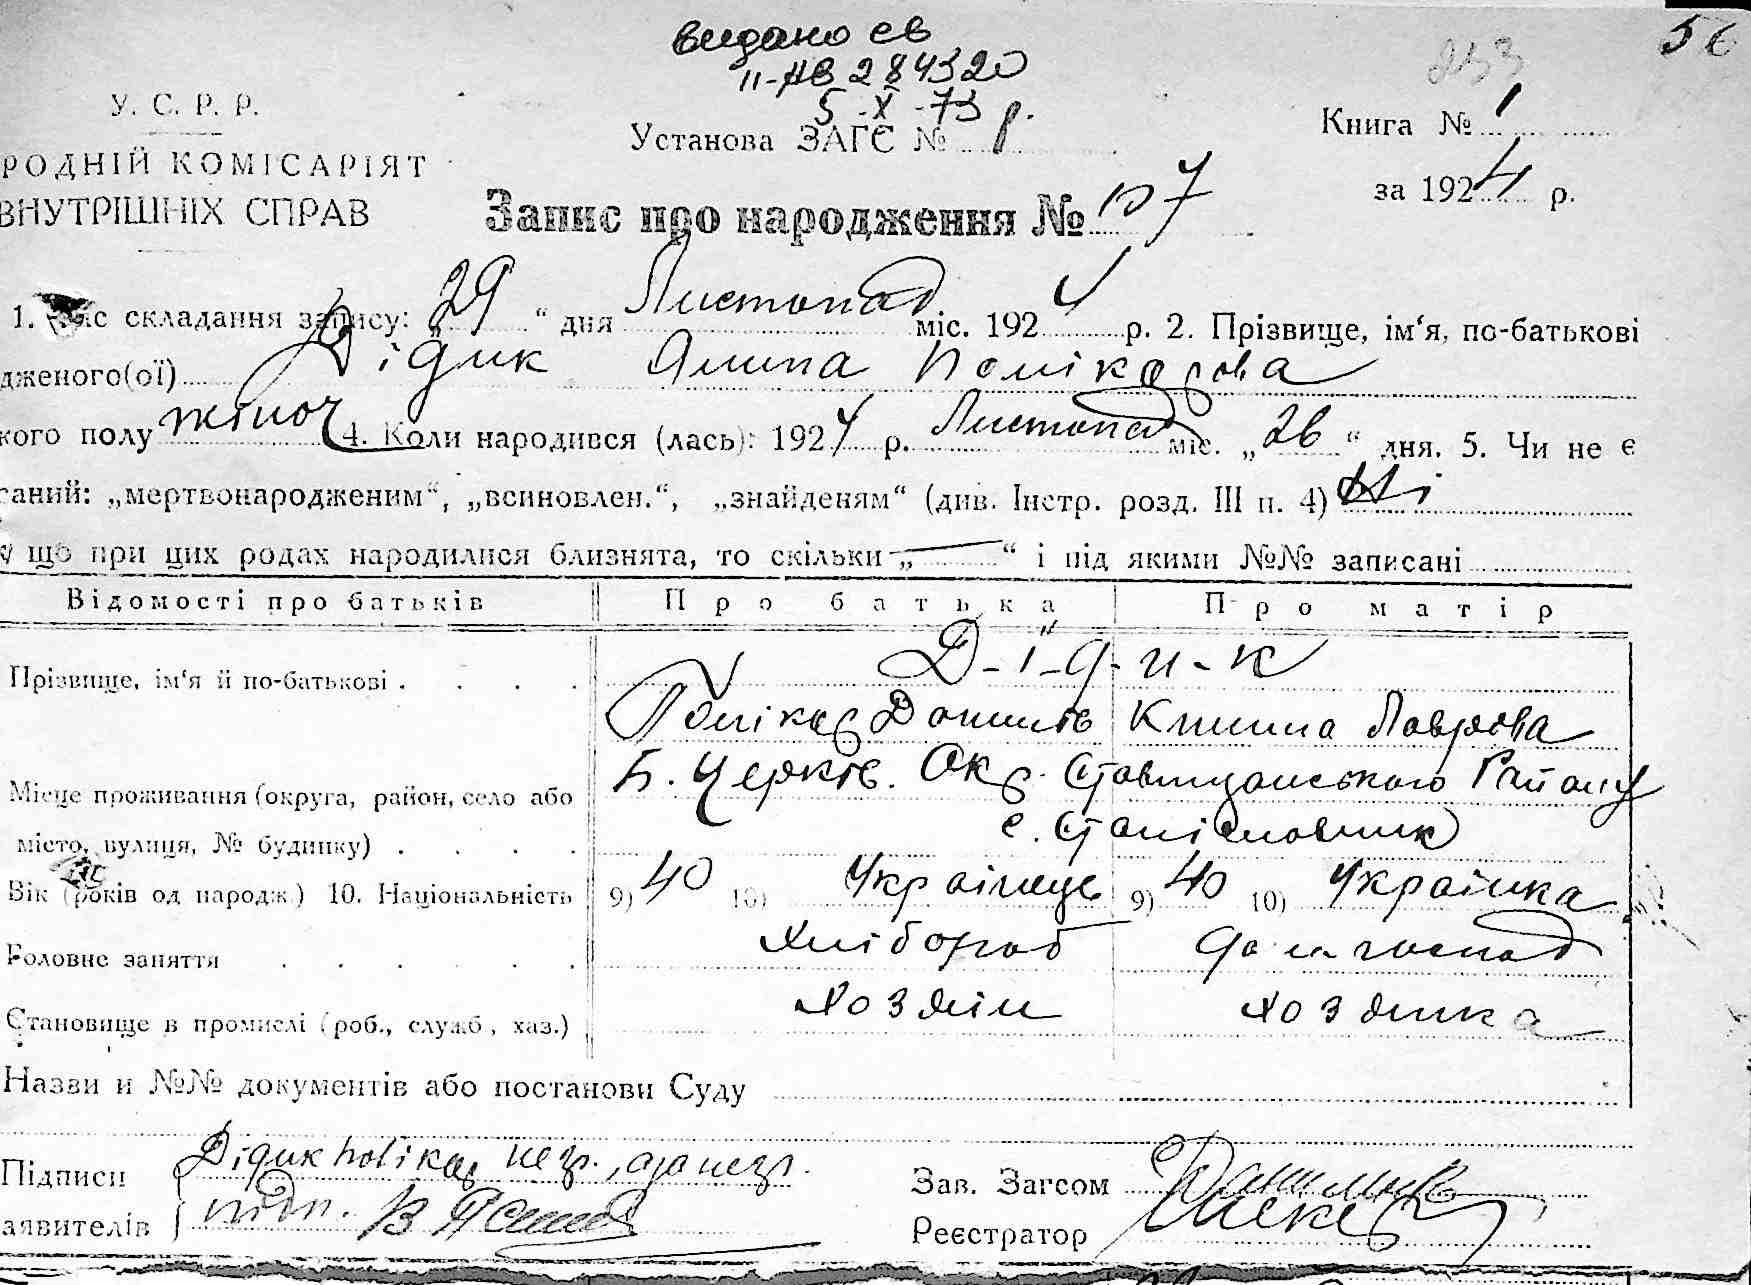 видано св
II-АВ 284320
5-X-73 р.
253
56
У. С. Р. Р.
РОДНІЙ КОМІСАРІЯТ
ВНУТРІШНІХ СПРАВ
Установа ЗАГС №
Книга № 1
за 1924 р.
Запис про народження №
1. Час складання запису: „29“ дня Листопад міс. 1924 р. 2. Прізвище, ім‘я, по-батькові
дженого(ої) Дідик Ялина Полікарова
кого полу жіноч 4. Коли народився (лась): 1924 р. Листопад міс. „26“ дня. 5. Чи не є
саний: „мертвонародженим“, „всиновлен.“, „знайденям“ (див. Інстр. розд. III п. 4) Ні
що при цих родах народилися близнята, то скільки „—“ і під якими №№ записані
Відомості про батьків Про батька Про матір
Прізвище, ім‘я й по-батькові . . . . Д-і-д-и-к
Полікар Данилів Килина Лаврова
Місце проживання (округа, район, село або Б. Церків. Окр. Ставищанського Району
місто, вулиця, № будинку) . . . . с. Станіславчик
Вік (років од народж.) 10. Національність 9) 40 10) Українець 9) 40 10) Українка
Головне заняття . . . . . . Хлібороб дом. господ
Становище в промислі (роб., служб., хаз.) Хозяїн Хозяйка
Назви и №№ документів або постанови Суду
Підписи Дідик Полікар незр., а за незр.
аявителів підп.
Зав. Загсом
Реєстратор